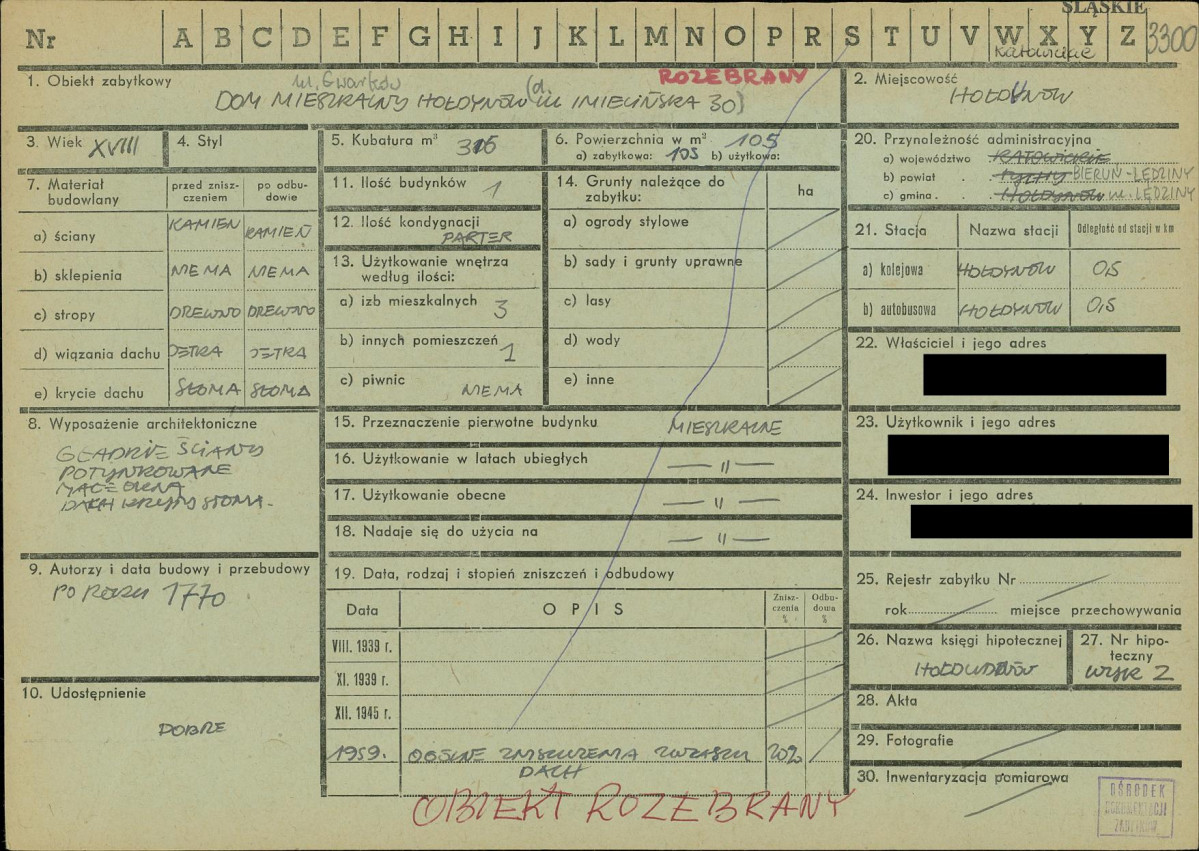 ŚLĄSKIE
Nr A B C D E F G H I J K L M N O P R S T U V W X Y Z 3300
Katowickie
1. Obiekt zabytkowy ul. Gwarków ROZEBRANY
DOM MIESZKALNY HOŁDYNÓW (d. ul. IMIELIŃSKA 30)
2. Miejscowość
HOŁDUNÓW
3. Wiek XVIII
4. Styl
5. Kubatura m³ 315
6. Powierzchnia w m² 105
a) zabytkowa: 105 b) użytkowa:
7. Materiał budowlany
przed zniszczeniem
po odbudowie
a) ściany KAMIEŃ KAMIEŃ
b) sklepienia NIEMA NIEMA
c) stropy DREWNO DREWNO
d) wiązania dachu JETKA JETKA
e) krycie dachu SŁOMA SŁOMA
8. Wyposażenie architektoniczne
GŁADKIE ŚCIANY
POTYNKOWANE
MAŁE OKNA
DACH KRYTY SŁOMA.
9. Autorzy i data budowy i przebudowy
PO ROKU 1770
10. Udostępnienie
DOBRE
11. Ilość budynków 1
12. Ilość kondygnacji
PARTER
13. Użytkowanie wnętrza
według ilości:
a) izb mieszkalnych 3
b) innych pomieszczeń 1
c) piwnic NIEMA
14. Grunty należące do
zabytku: ha
a) ogrody stylowe
b) sady i grunty uprawne
c) lasy
d) wody
e) inne
15. Przeznaczenie pierwotne budynku MIESZKALNE
16. Użytkowanie w latach ubiegłych — " —
17. Użytkowanie obecne — " —
18. Nadaje się do użycia na — " —
19. Data, rodzaj i stopień zniszczeń i odbudowy
Data OPIS Zniszczenia % Odbudowa %
VIII. 1939 r.
XI. 1939 r.
XII. 1945 r.
1959. OGÓLNE ZNISZCZENIA ZWŁASZCZA 20%
DACH
OBIEKT ROZEBRANY
20. Przynależność administracyjna
a) województwo KATOWICKIE
b) powiat . TYCHY BIERUŃ-LĘDZINY
c) gmina . . HOŁDYNÓW m. LĘDZINY
21. Stacja Nazwa stacji Odległość od stacji w km
a) kolejowa HOŁDYNÓW 0,5
b) autobusowa HOŁDYNÓW 0,5
22. Właściciel i jego adres
23. Użytkownik i jego adres
24. Inwestor i jego adres
25. Rejestr zabytku Nr
rok miejsce przechowywania
26. Nazwa księgi hipotecznej
HOŁDUNÓW
27. Nr hipoteczny
WYK 2
28. Akta
29. Fotografie
30. Inwentaryzacja pomiarowa
OŚRODEK
DOKUMENTACJI
ZABYTKÓW